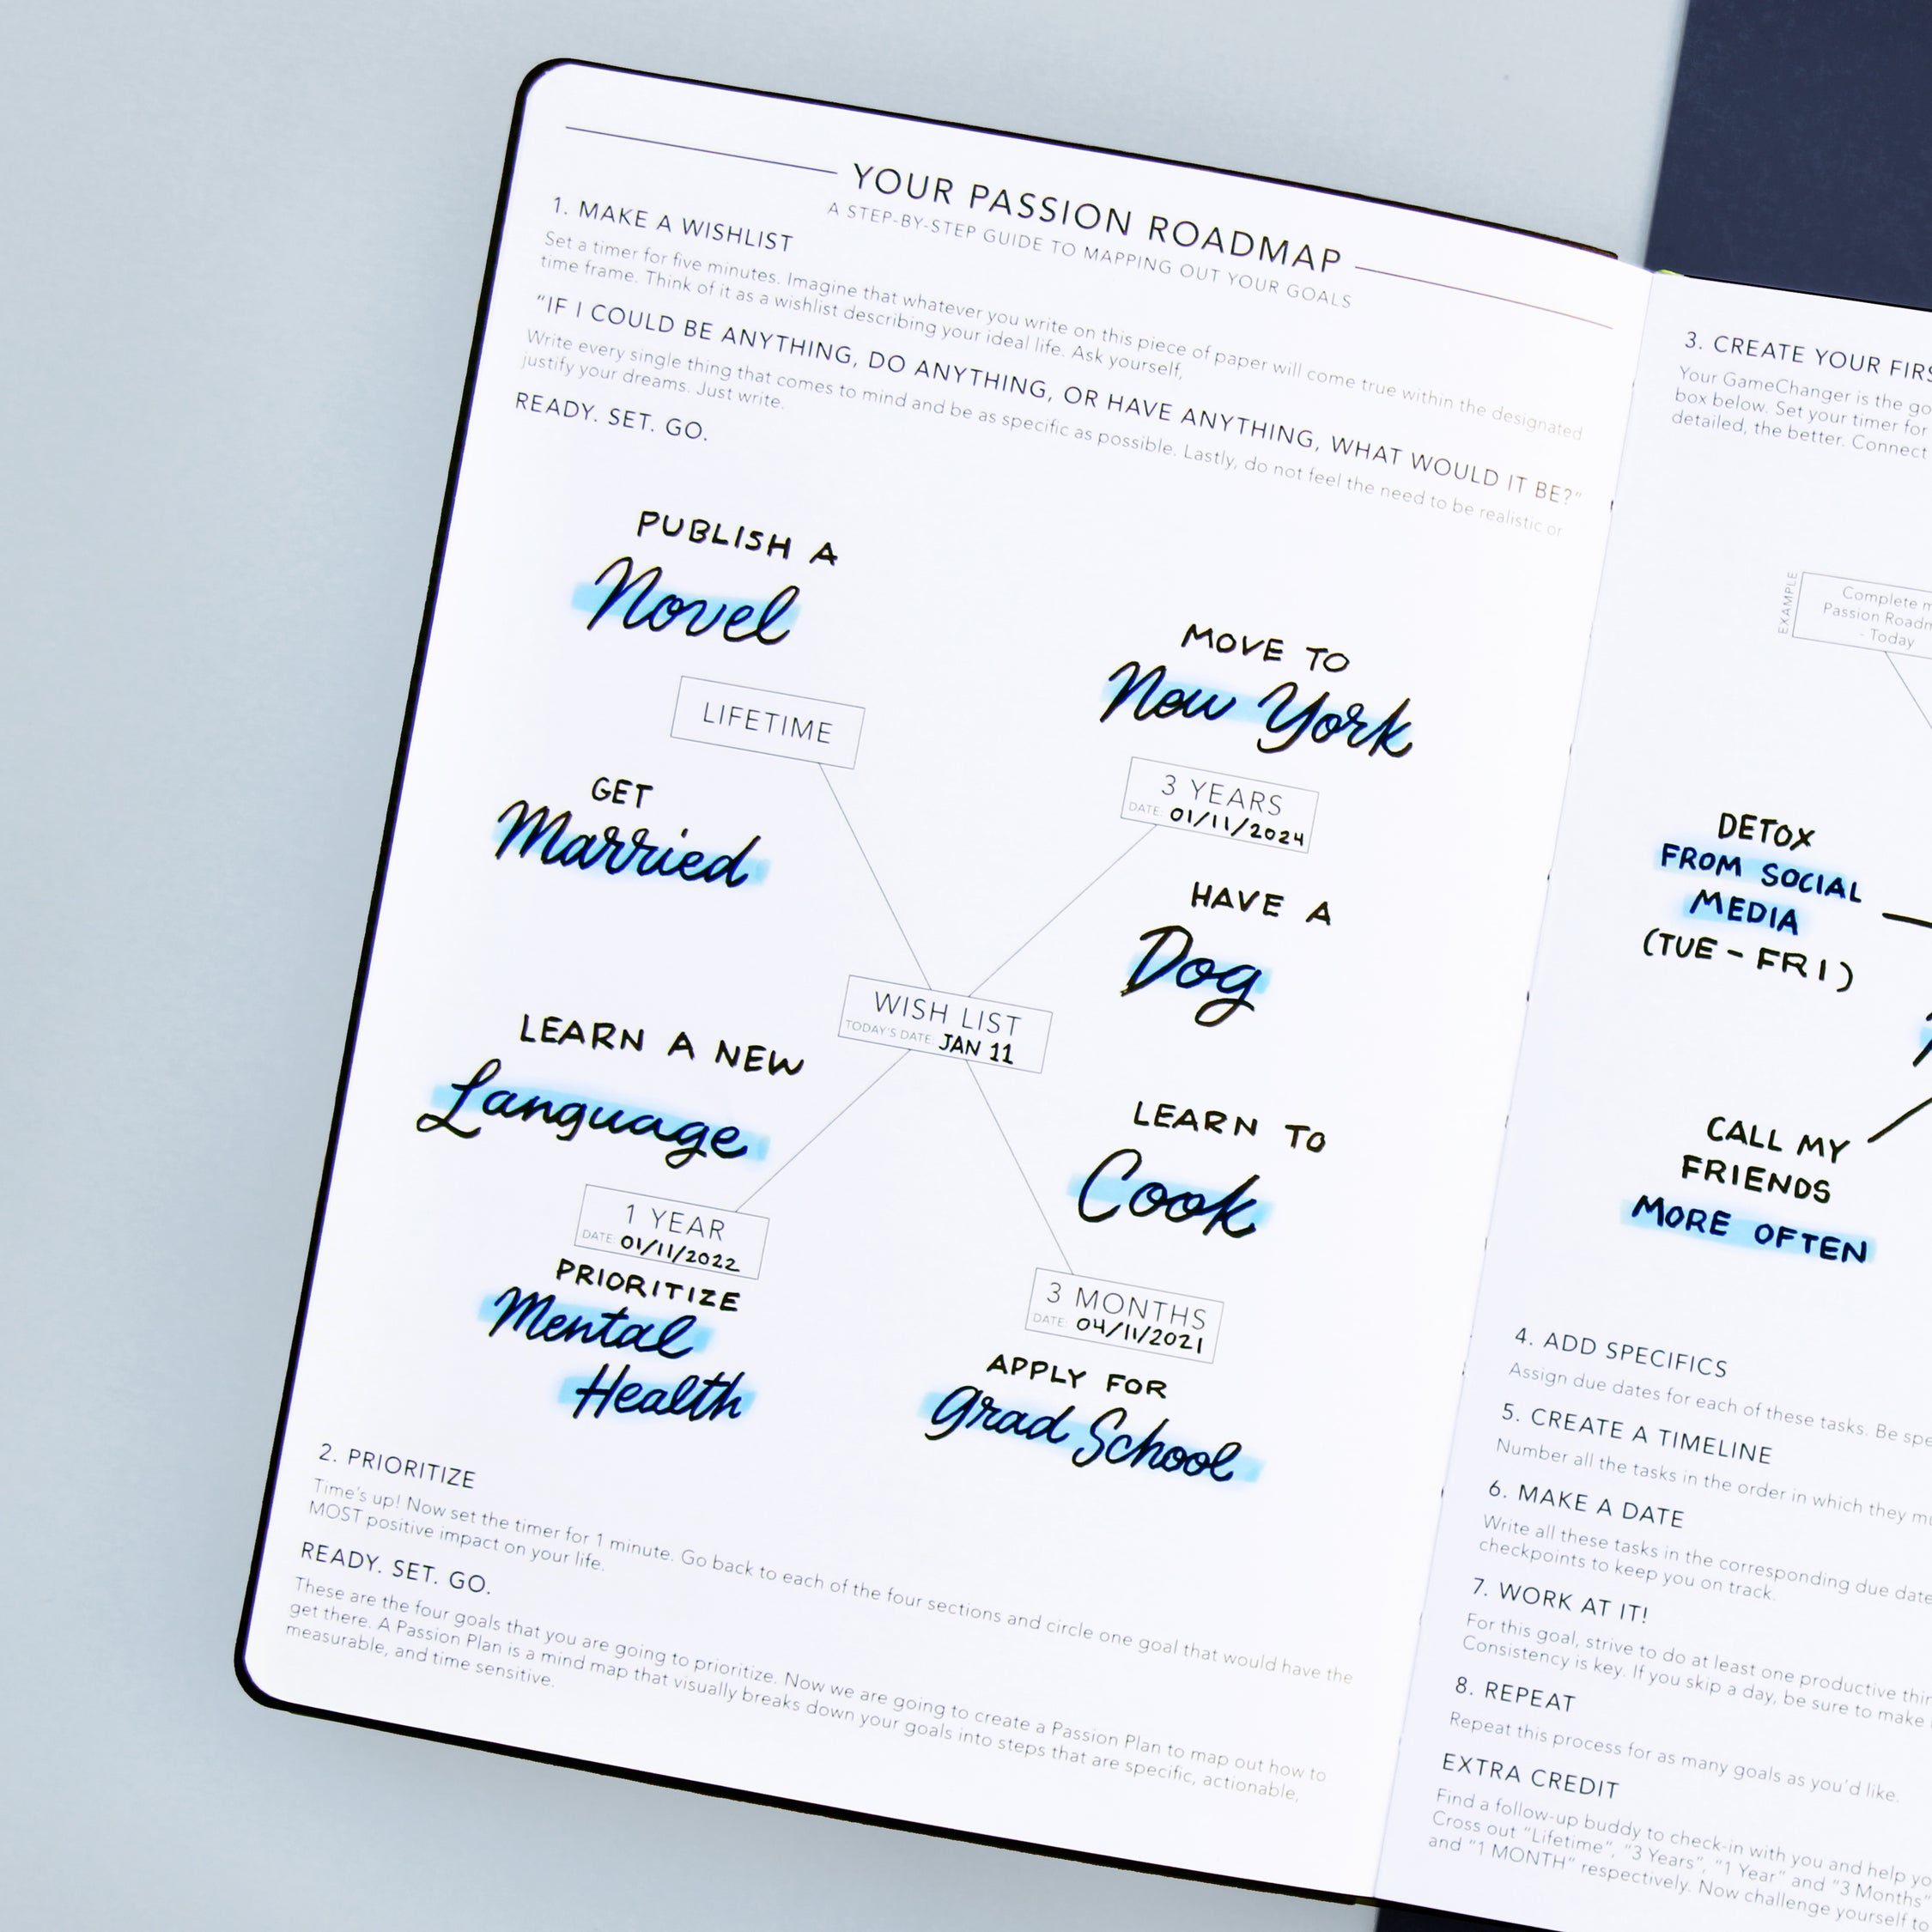 YOUR PASSION ROADMAP
A STEP-BY-STEP GUIDE TO MAPPING OUT YOUR GOALS
1. MAKE A WISHLIST
Set a timer for five minutes. Imagine that whatever you write on this piece of paper will come true within the designated
time frame. Think of it as a wishlist describing your ideal life. Ask yourself,
"IF I COULD BE ANYTHING, DO ANYTHING, OR HAVE ANYTHING, WHAT WOULD IT BE?"
Write every single thing that comes to mind and be as specific as possible. Lastly, do not feel the need to be realistic or
justify your dreams. Just write.
READY. SET. GO.
PUBLISH A
Novel
LIFETIME
GET
Married
MOVE TO
New York
3 YEARS
DATE: 01/11/2024
HAVE A
Dog
WISH LIST
TODAY'S DATE: JAN 11
LEARN A NEW
Language
1 YEAR
DATE: 01/11/2022
PRIORITIZE
Mental
Health
LEARN TO
Cook
3 MONTHS
DATE: 04/11/2021
APPLY FOR
Grad School
2. PRIORITIZE
Time's up! Now set the timer for 1 minute. Go back to each of the four sections and circle one goal that would have the
MOST positive impact on your life.
READY. SET. GO.
These are the four goals that you are going to prioritize. Now we are going to create a Passion Plan to map out how to
get there. A Passion Plan is a mind map that visually breaks down your goals into steps that are specific, actionable,
measurable, and time sensitive.
3. CREATE YOUR FIRS
Your GameChanger is the go
box below. Set your timer for
detailed, the better. Connect
EXAMPLE
Complete m
Passion Roadm
- Today
DETOX
FROM SOCIAL
MEDIA
(TUE - FRI)
CALL MY
FRIENDS
MORE OFTEN
4. ADD SPECIFICS
Assign due dates for each of these tasks. Be spe
5. CREATE A TIMELINE
Number all the tasks in the order in which they mu
6. MAKE A DATE
Write all these tasks in the corresponding due date
checkpoints to keep you on track.
7. WORK AT IT!
For this goal, strive to do at least one productive thin
Consistency is key. If you skip a day, be sure to make
8. REPEAT
Repeat this process for as many goals as you'd like.
EXTRA CREDIT
Find a follow-up buddy to check-in with you and help yo
Cross out "Lifetime", "3 Years", "1 Year" and "3 Months"
and "1 MONTH" respectively. Now challenge yourself to